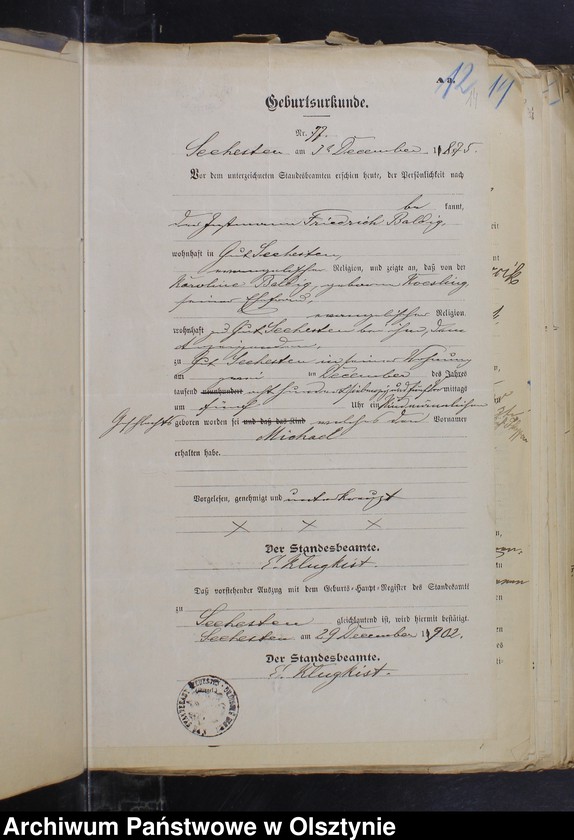 A b.
12 14
Geburtsurkunde.
Nr. 77.
Seehesten am 3t December 1875.
Vor dem unterzeichneten Standesbeamten erschien heute, der Persönlichkeit nach
be kannt,
der Instmann Friedrich Baldig,
wohnhaft in Gut Seehesten,
evangelischer Religion, und zeigte an, daß von der
Karoline Baldig, geborene Koesling,
seiner Ehefrau,
evangelischer Religion
wohnhaft zu Gut Seehesten bei ihm, dem
Anzeigenden,
zu Gut Seehesten in seiner Wohnung
am zwei ten December des Jahres
tausend neunhundert acht hundert siebenzig und fünf mittags
um fünf Uhr ein Kind männlichen
Geschlechts geboren worden sei und daß das Kind welches den Vornamen
Michael
erhalten habe.
Vorgelesen, genehmigt und unterkreuzt
× × ×
Der Standesbeamte.
Klugkist.
Daß vorstehender Auszug mit dem Geburts-Haupt-Register des Standesamt
zu
Seehesten gleichlautend ist, wird hiermit bestätigt.
Seehesten am 29 December 1902.
Der Standesbeamte.
Klugkist.
Archiwum Państwowe w Olsztynie